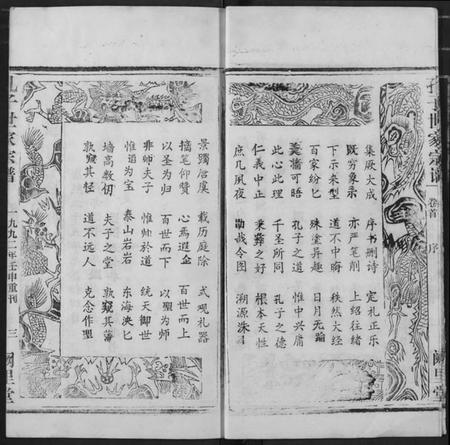 孔子世家宗譜 卷首 序 闕里堂
集厥大成 序书删诗 定礼正乐
既穷象系 亦严笔削 上绍往绪
下示来型 道不中晦 秩然大经
百家纷匕 殊塗异趣 日月无踰
羹墙可晤 孔子之道 惟中与庸
此心此理 千圣所同 孔子之德
仁義中正 秉彝之好 根本天性
庶几夙夜 勖哉令图 溯源洙
景躅唐虞 载历庭除 式观礼器
摛笔仰赞 心焉遐企 百世而上
以圣为归 百世而下 以聖为师
非师夫子 惟师於道 统天御世
惟道为宝 泰山岩岩 东海泱匕
墙高数仞 夫子之堂 孰窥其藩
孰窥其径 道不远人 克念作聖
孔子世家宗譜 一九九二年壬申重刊 三 闕里堂